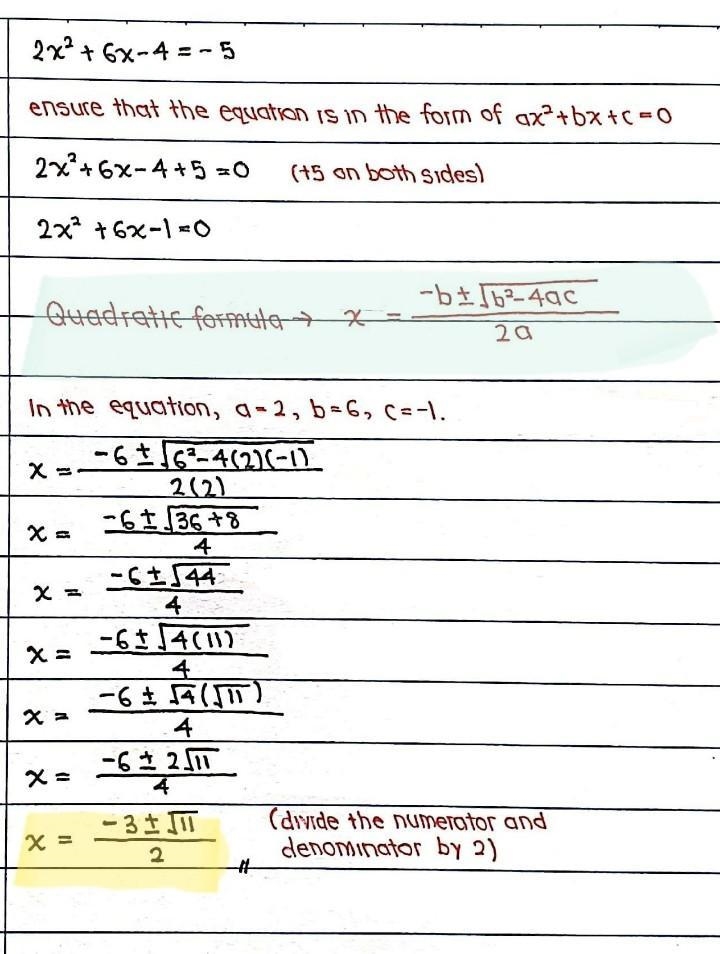 2x² + 6x - 4 = - 5
ensure that the equation is in the form of ax² + bx + c = 0
2x² + 6x - 4 + 5 = 0 (+5 on both sides)
2x² + 6x - 1 = 0
Quadratic formula → x = (-b ± √(b² - 4ac)) / 2a
In the equation, a = 2, b = 6, c = -1.
x = (-6 ± √(6² - 4(2)(-1))) / 2(2)
x = (-6 ± √(36 + 8)) / 4
x = (-6 ± √44) / 4
x = (-6 ± √(4(11))) / 4
x = (-6 ± √4(√11)) / 4
x = (-6 ± 2√11) / 4
x = (-3 ± √11) / 2 (divide the numerator and
denominator by 2)